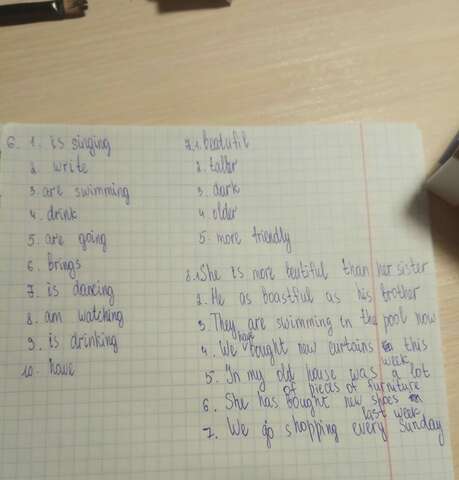 6. 1. is singing
2. write
3. are swimming
4. drink
5. are going
6. brings
7. is dancing
8. am watching
9. is drinking
10. have
7.1. beatufil
2. taller
3. dark
4. older
5. more friendly
8.1 She is more beutiful than her sister
2. He as boastful as his brother
3. They are swimming in the pool now
4. We have bought new curtains this week
5. In my old house was a lot
of pieces of furniture
6. She has bought new shoes
last week
7. We go shopping every Sunday